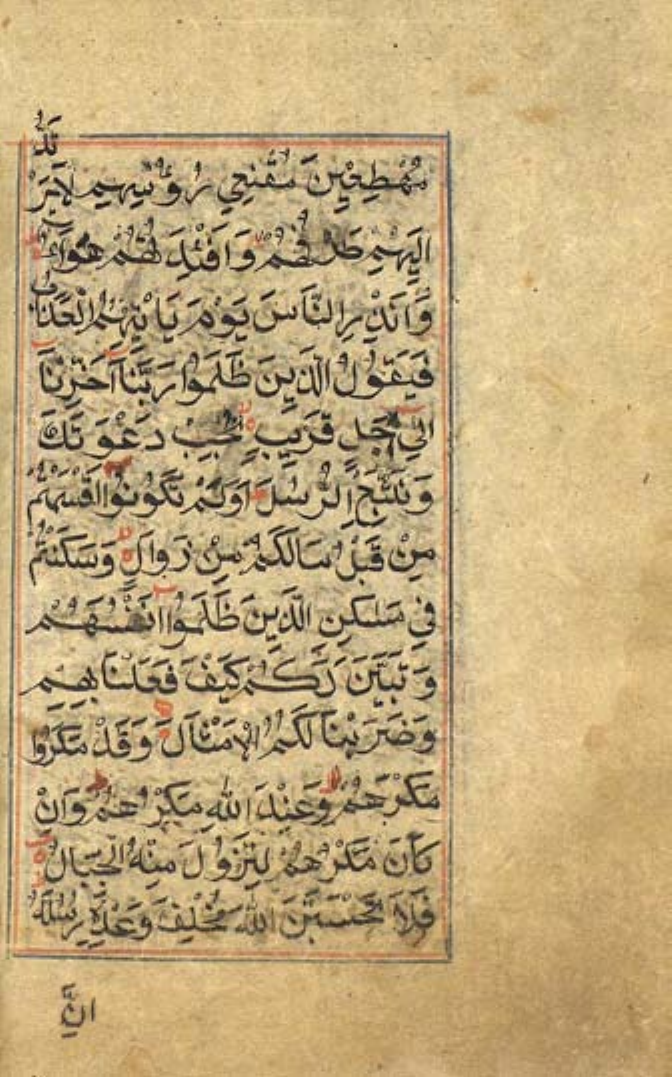 مُهْطِعِينَ مُقْنِعِي رُؤُسِهِمْ لَا يَرْ
تَدُّ
اِلَيْهِمْ طَرْفُهُمْ وَاَفْئِدَتُهُمْ هَوَاءٌ
وَاَنْذِرِ النَّاسَ يَوْمَ يَاْتِيهِمُ الْعَذَابُ
فَيَقُولُ الَّذِينَ ظَلَمُوا رَبَّنَا اَخِّرْنَا
اِلٰى اَجَلٍ قَرِيبٍ نُجِبْ دَعْوَتَكَ
وَنَتَّبِعِ الرُّسُلَ اَوَلَمْ تَكُونُوا اَقْسَمْتُمْ
مِنْ قَبْلُ مَالَكُمْ مِنْ زَوَالٍ وَسَكَنْتُمْ
فِي مَسٰكِنِ الَّذِينَ ظَلَمُوا اَنْفُسَهُمْ
وَتَبَيَّنَ لَكُمْ كَيْفَ فَعَلْنَا بِهِمْ
وَضَرَبْنَا لَكُمُ الْاَمْثَالَ وَقَدْ مَكَرُوا
مَكْرَهُمْ وَعِنْدَ اللّٰهِ مَكْرُهُمْ وَاِنْ
كَانَ مَكْرُهُمْ لِتَزُولَ مِنْهُ الْجِبَالُ
فَلَا تَحْسَبَنَّ اللّٰهَ مُخْلِفَ وَعْدِهِ رُسُلَهُ
اِنَّ